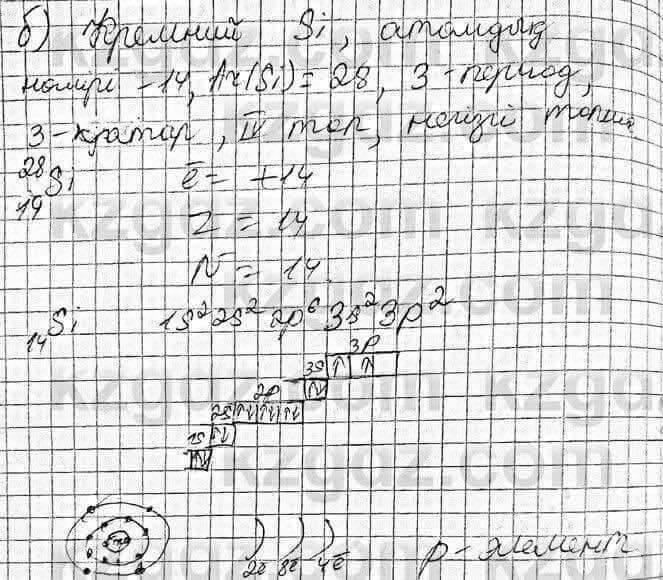 б) Кремний Si, атомдық
номірі - 14, Ar(Si) = 28, 3 - период,
3 - қатар, IV топ, негізгі топша
28 Si ē = +14
14 Z = 14
N = 14
14 Si 1s² 2s² 2p⁶ 3s² 3p²
3p
3s ↑ ↑
2p ↑↓
2s ↑↓ ↑↓ ↑↓
1s ↑↓
↑↓
2ē 8ē 4ē p - элемент
kzgdz.com kzgdz.com